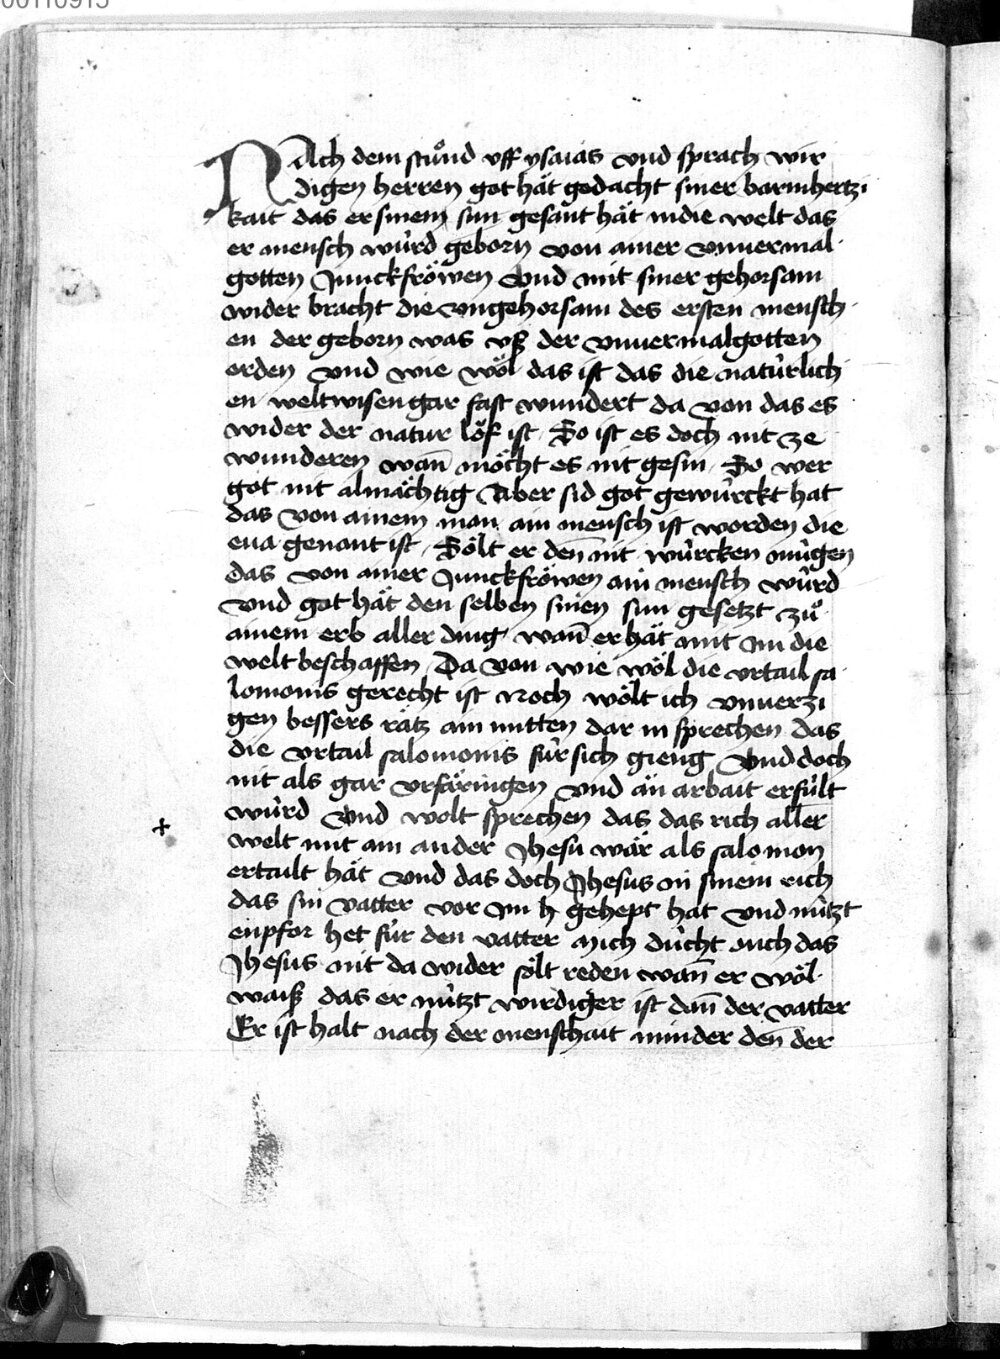 00110915
NAch dem stuͦnd vff ysaias vnd sprach wir
digen herren got hät gedacht siner barmhertzi
kait das er sinem sun gesant hät in die welt das
er mensch wúrd geborn von ainer vnuermal
gotten Junckfröwen Vnd mit siner gehorsam
wider bracht die vngehorsam des ersten mensch
en der geborn was vß der vnuermalgotten
erden vnd wie wöl das ist das die natúrlich
en weltwisen gar fast wundert da von das es
wider der natur löf ist So ist es doch nit ze
wunderen wan̄ möcht es nit gesin So wer
got nit almächtig Aber sid got gewúrckt hat
das von ainem man ain mensch ist worden die
eua genant ist Sölt er den̄ nit wúrcken múgen
das von ainer Junckfröwen ain mensch wúrd
Vnd got hät den selben sinen sun gesetzt zuͦ
ainem erb aller ding wan̄ er hät mit im die
welt beschaffen Da von wie wöl die vrtail sa
lomonis gerecht ist Noch wölt ich vnuerzi
gen bessers rätz ain mitten dar in sprechen das
die vrtail salomonis fúr sich gieng Vnd doch
nit als gar vrfäringen vnd än arbait erfúlt
wúrd Vnd wolt sprechen das das rich aller
welt mit ain ander Jhesu wär als salomon
ertailt hät vnd das doch Jhesus in sinem rich
das sin vatter vor im h gehept hat vnd nútzt
enpfor het fúr den vatter Mich dúcht ouch das
Jhesus nit da wider sölt reden wan̄ er wöl
waiß das er nútzt wirdiger ist dan̄ der vatter
Er ist halt nach der menschait minder den̄ der